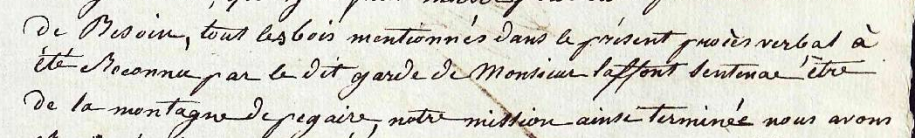 de Besoin, tout les bois mentionnés dans le présent procès verbal à
été Reconnu par le dit garde de Monsieur laffont Sentenac être
de la montagne de pegaire, notre mission ainsi terminée nous avons